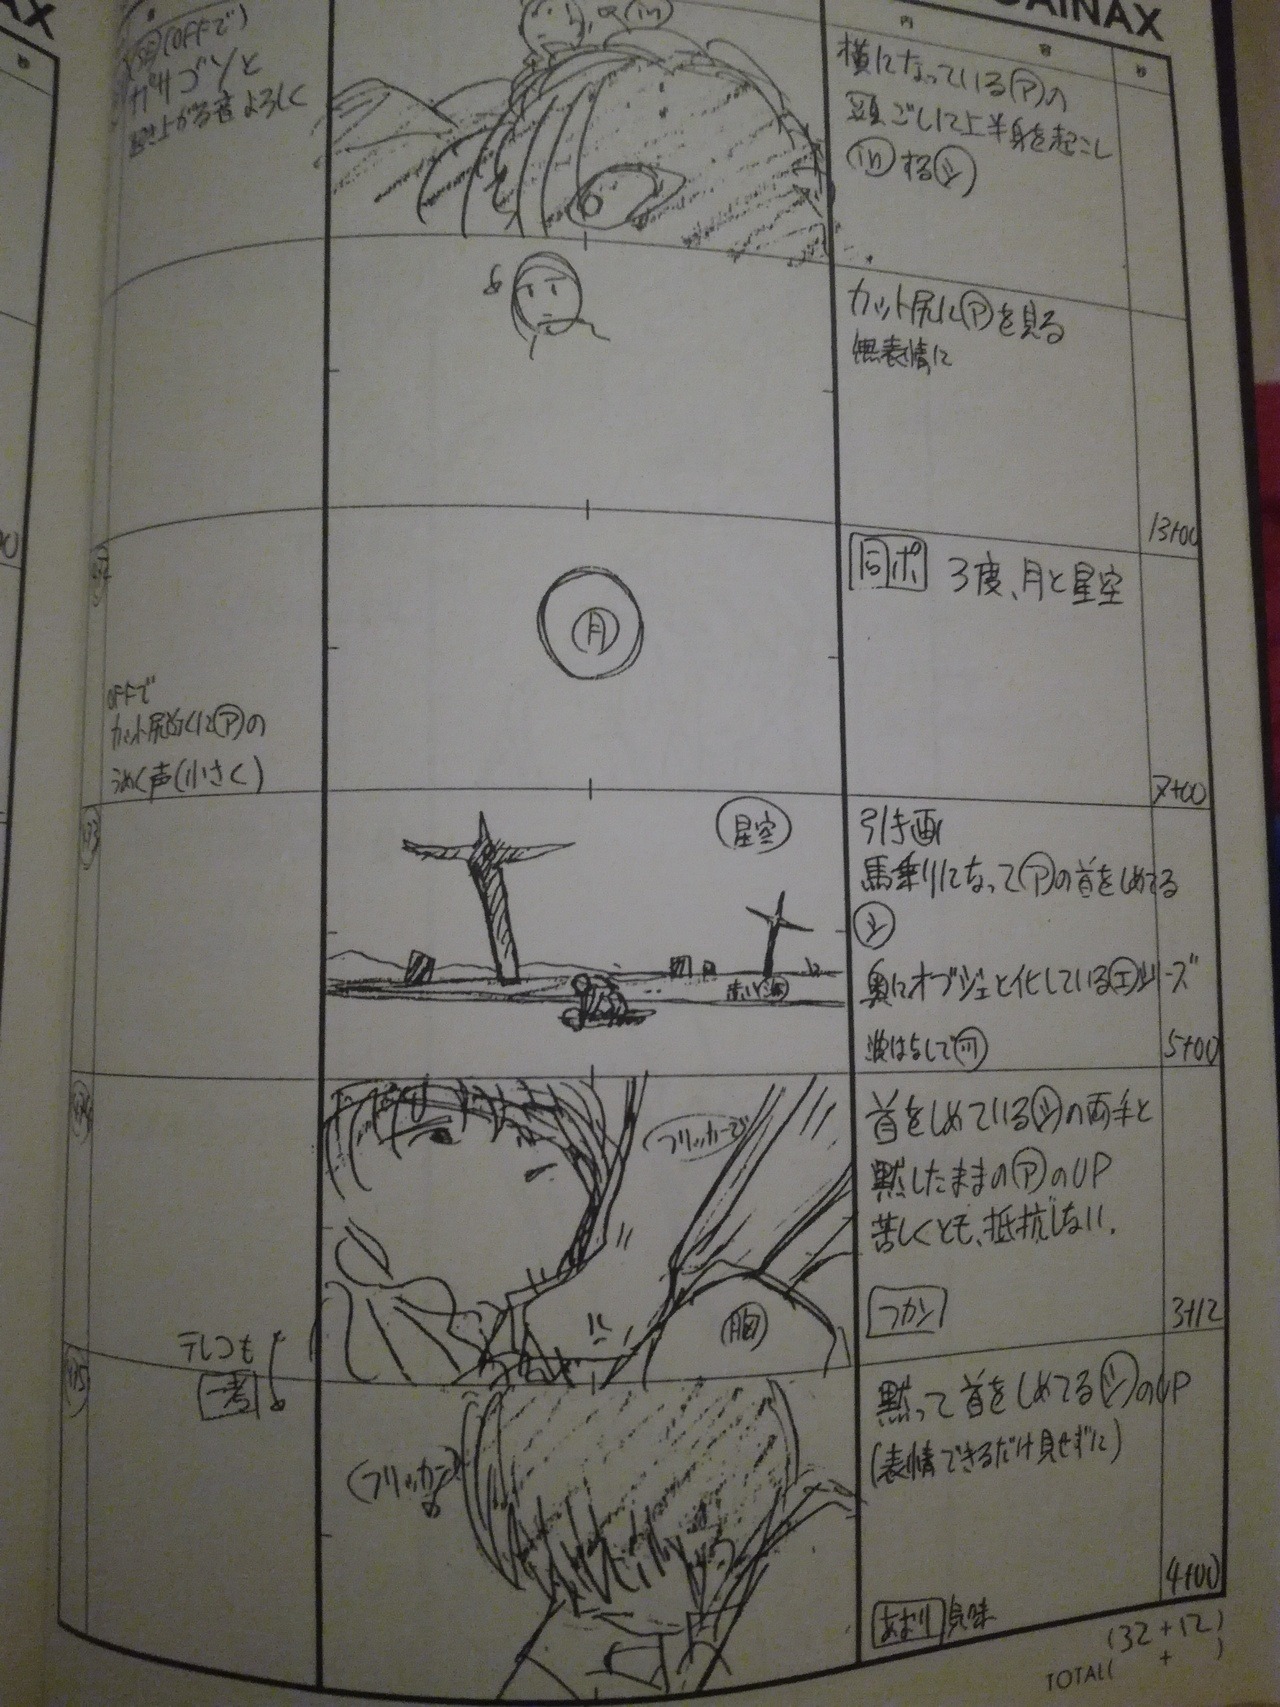 GAINAX
SE (OFFで)
ガサゴソと
起き上がる音よろしく
in
横になっているアの
頭ごしに上半身を起こし
inするシ
カット尻にアを見る
無表情に
13+00
同ポ 3度、月と星空
月
OFFで
カット尻近くにアの
うめく声(小さく)
7+00
星空
引き画
馬乗りになってアの首をしめてる
シ
奥にオブジェと化しているエシリーズ
赤い海
波はなしで可
5+00
首をしめているシの両手と
フリッカーで
黙したままのアのUP
苦しくとも、抵抗しない。
フカン
胸
3+12
テレコも
一考
黙って首をしめてるシのUP
(表情できるだけ見せずに)
(フリッカー)
4+00
あおり 気味
(32+12)
TOTAL( + )